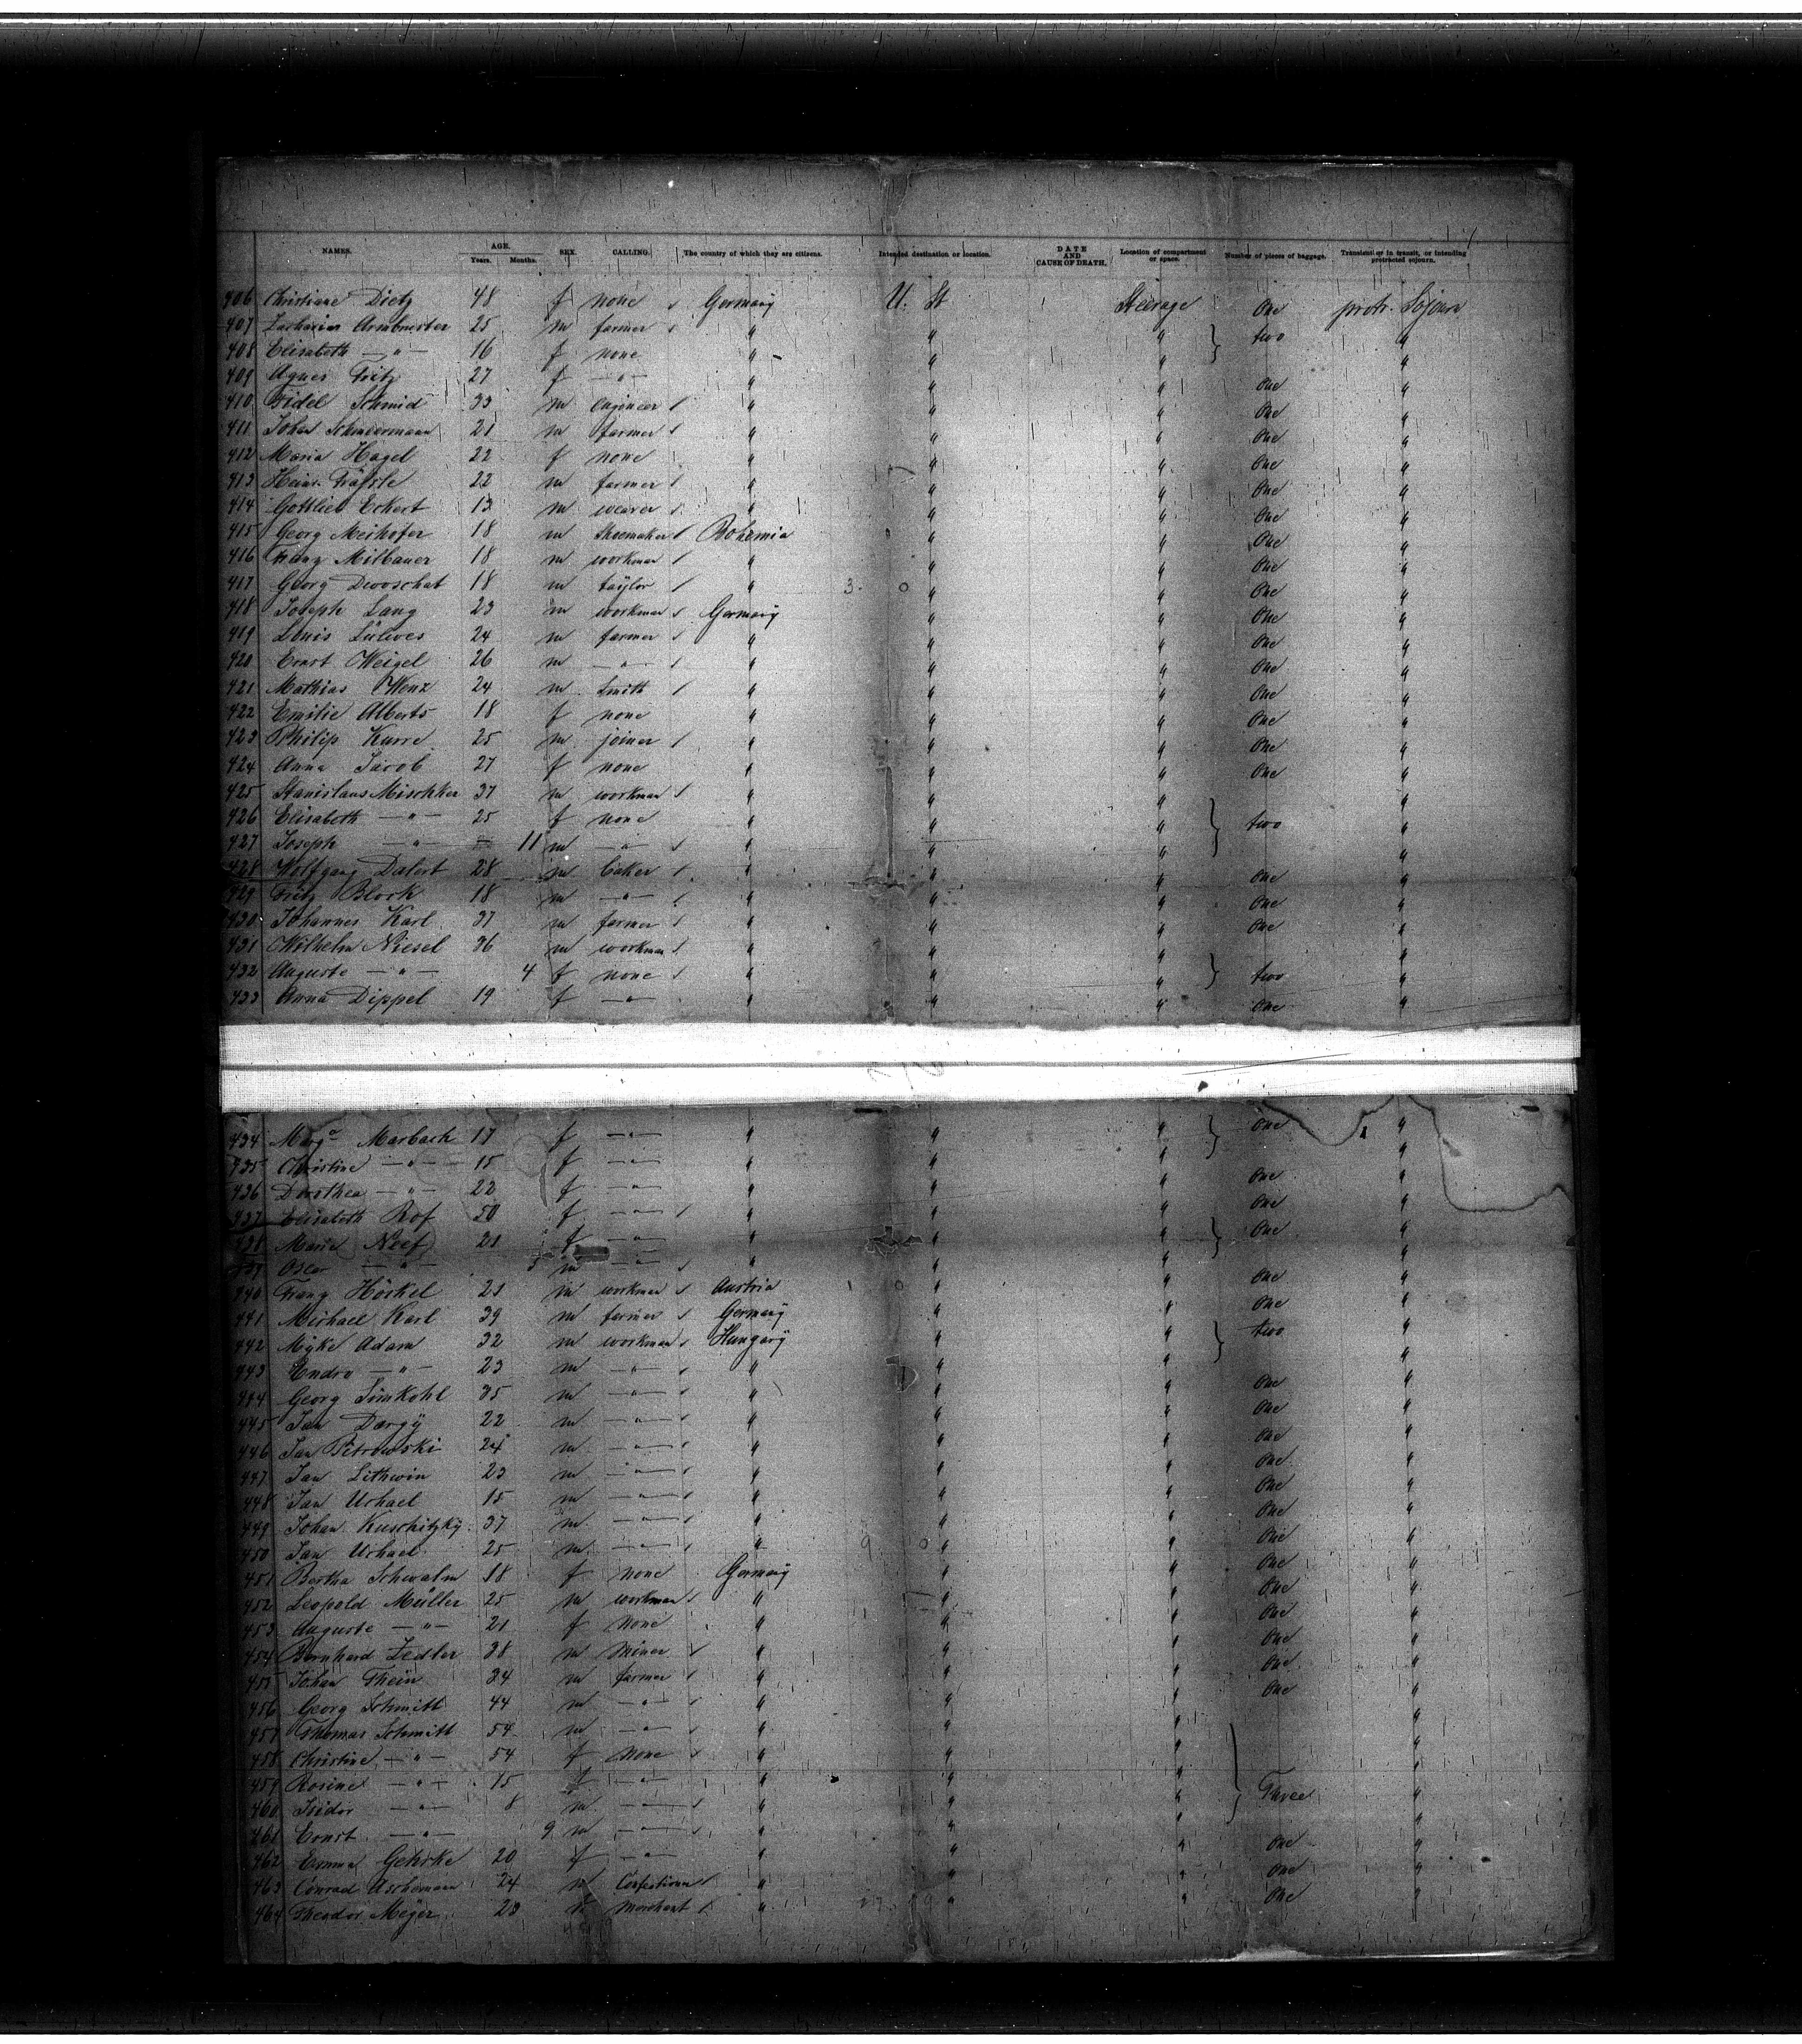 NAMES. AGE. Years. Months. SEX. CALLING. The country of which they are citizens. Intended destination or location. DATE AND CAUSE OF DEATH. Location of compartment or space. Number of pieces of baggage. Transient or in transit, or intending protracted sojourn.
406 Christiane Dietz 48 f none Germany U. St Steerage One protr. Sojourn
407 Zacharias Armbruster 25 m farmer " " " two "
408 Elisabeth — " — 16 f none " " " "
409 Agnes Fritz 27 f — " — " " " One "
410 Fidel Schmid 33 m engineer " " " One "
411 Johan Schneermann 21 m farmer " " " One "
412 Maria Hagel 22 f none " " " One "
413 Heinr. 22 m farmer " " " One "
414 Gottlieb Eckert 13 m weaver " " " One "
415 Georg Meihofer 18 m shoemaker Bohemia " " One "
416 Franz Milbauer 18 m workman " " " One "
417 Georg Dwoschat 18 m taylor " 3 0 " " One "
418 Joseph Lang 23 m workman Germany " " One "
419 Louis Lülwes 24 m farmer " " " One "
420 Ernst Weigel 26 m — " — " " " One "
421 Mathias Wenz 24 m smith " " " One "
422 Emilie Alberts 18 f none " " " One "
423 Philip Kurre 25 m joiner " " " One "
424 Anna Jacob 27 f none " " " One "
425 Stanislaus Mischker 37 m workman " " " "
426 Elisabeth — " — 25 f none " " " two "
427 Joseph — " — 11 m — " — " " " "
428 Wolfgang 28 m baker " " " One "
429 Fritz Block 18 m — " — " " " One "
430 Johannes Karl 37 m farmer " " " One "
431 Wilhelm Niesel 36 m workman " " " "
432 Auguste — " — 4 f none " " " two "
433 Anna Dippel 19 f — " — " " " One "
434 Marg. Marbach 17 f — " — " " " One "
435 Christine — " — 15 f — " — " " " "
436 Dorothea — " — 22 f — " — " " " One "
437 Elisabeth Rof 50 f — " — " " " One "
438 Marie Neef 21 f — " — " " " One "
439 — " — 5 m — " — " " " "
440 Franz Höckel 21 m workman Austria 1 0 " " One "
441 Michael Karl 39 m farmer Germany " " One "
442 Myke Adam 32 m workman Hungary " " two "
443 Endro — " — 23 m — " — " " " "
444 Georg Simkohl 35 m — " — " " " One "
445 Jan Dargÿ 22 m — " — " " " One "
446 Jan Petrowski 24 m — " — " " " One "
447 Jan Lithwin 23 m — " — " " " One "
448 Jan Urhael 15 m — " — " " " One "
449 Johan Kuschitzky 37 m — " — " " " One "
450 Jan Urhael 25 m — " — " 9 0 " " One "
451 Bertha Schwalm 18 f none Germany " " One "
452 Leopold Müller 25 m workman " " " One "
453 Auguste — " — 21 f none " " " One "
454 Bernhard Zedler 38 m miner " " " One "
455 Johan Thein 34 m farmer " " " One "
456 Georg Schmitt 44 m — " — " " " One "
457 Thomas Schmitt 54 m — " — " " " "
458 Christine — " — 54 f none " " " "
459 Rosine — " — 15 f — " — " " " "
460 Isidor — " — 8 m — " — " " " Three "
461 Ernst — " — 9 m — " — " " " "
462 Emma Gehrke 20 f — " — " " " One "
463 Conrad Aschemann 24 m Confectioner " " " One "
464 Theodor Meyer 23 m Merchant " " " One "